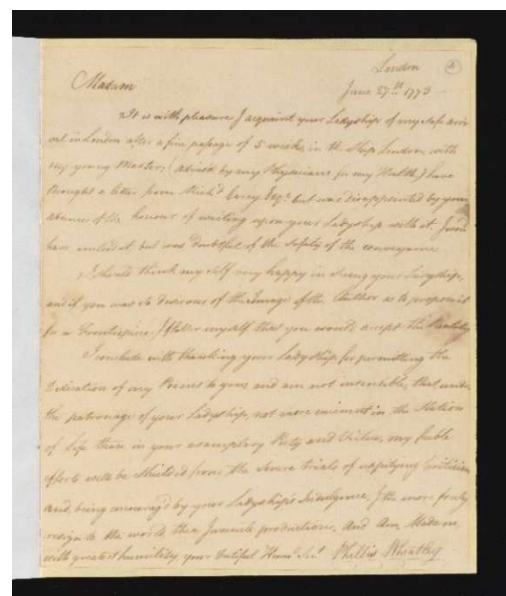 London
June 27th 1773
Madam
It is with pleasure I acquaint your Ladyship of my safe arri
val in London after a fine passage of 5 weeks in the Ship London with
my young Master; (advised by my Physicians for my Health,) have
brought a letter from Richd. Carey Esqr. but was disappointed by your
absence of the honour of waiting upon your Ladyship with it. I woud
have but was doubtful of the safety of the conveyance.
I should think my self very happy in seeing your Ladyship,
and if you was so desirous of the Image of the Author as to propose it
for a Frontispiece I flatter myself that you would accept the Reality.
I conclude with thanking your Ladyship for permitting the
Dedication of my Poems to you; and am not insensible, that under
the patronage of your Ladyship, not more eminent in the Station
of Life than in your exemplary Piety and Virtue, my feeble
efforts will be Shielded from the Severe trials of uppitying Criticism
and, being encourag'd by your Ladyship's Indulgence, I the more freely
resign to the world these Juvenile productions, And Am, Madam,
with greatest humility, your Dutiful Huml. Sert. Phillis Wheatley